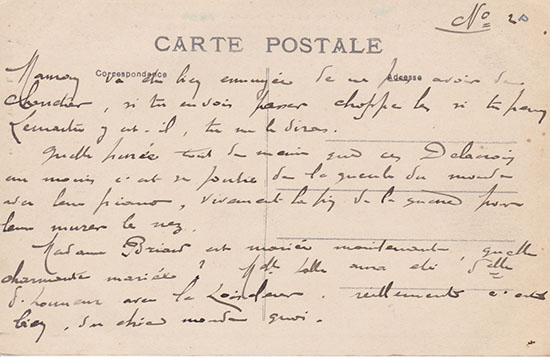 No 20
CARTE POSTALE
Correspondance
Adresse
Maman va être bien ennuyée de ne pas avoir de
chercher, si tu en vois passer choppe les si tu peux
Lemaitre y est-il, tu me le diras.
Quelle purée tout de même que ces Delacroix
au moins c'est se foutre de la gueule du monde
avec leur piano, vivement la fin de la guerre pour
leur murer le nez.
Madame Briard est mariée maintenant, quelle
charmante mariée ? Melle folle aura été Delle
d'honneur avec la Loindeur. réellement c'est
bien, du chic monde quoi.